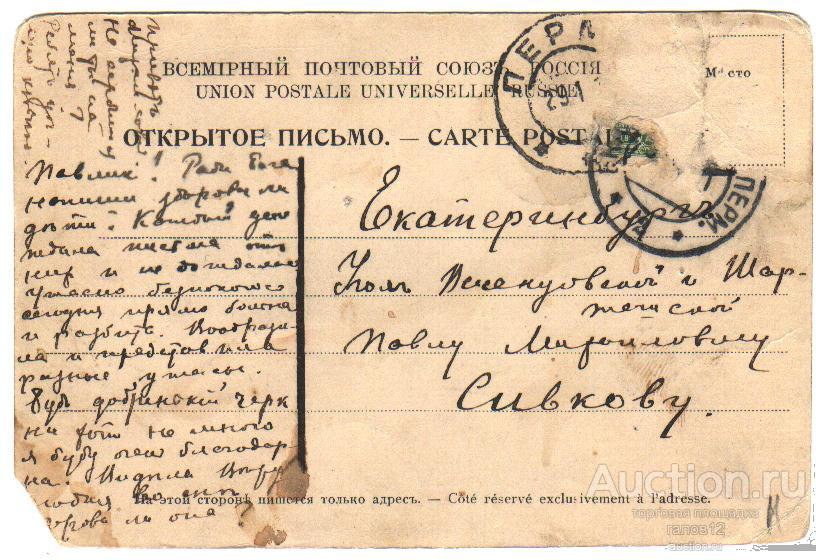 ВСЕМІРНЫЙ ПОЧТОВЫЙ СОЮЗЪ. РОССІЯ
UNION POSTALE UNIVERSELLE. RUSSIE
Мѣсто
ОТКРЫТОЕ ПИСЬМО. — CARTE POSTALE
ПЕРМ
291
ПЕРМ.
Павликъ! Ради Бога
напиши здоровы ли
дѣти? Каждый день
ждала письма отъ
и не дождалась
Ужасно безпокоюсь
сегодня прямо больна
и разбита. Вообрази-
ла и представила
разные ужасы.
Будь добринькій черк
ни хоть не много
я буду очень благодар-
на. Видѣла
ли она?
Екатеринбургъ
Уголъ и Шар-
ташской
Павлу Михайловичу
Сивкову.
На этой сторонѣ пишется только адресъ. — Côté réservé exclusivement à l'adresse.
Auction.ru
торговая площадка
ганов12
auction.ru